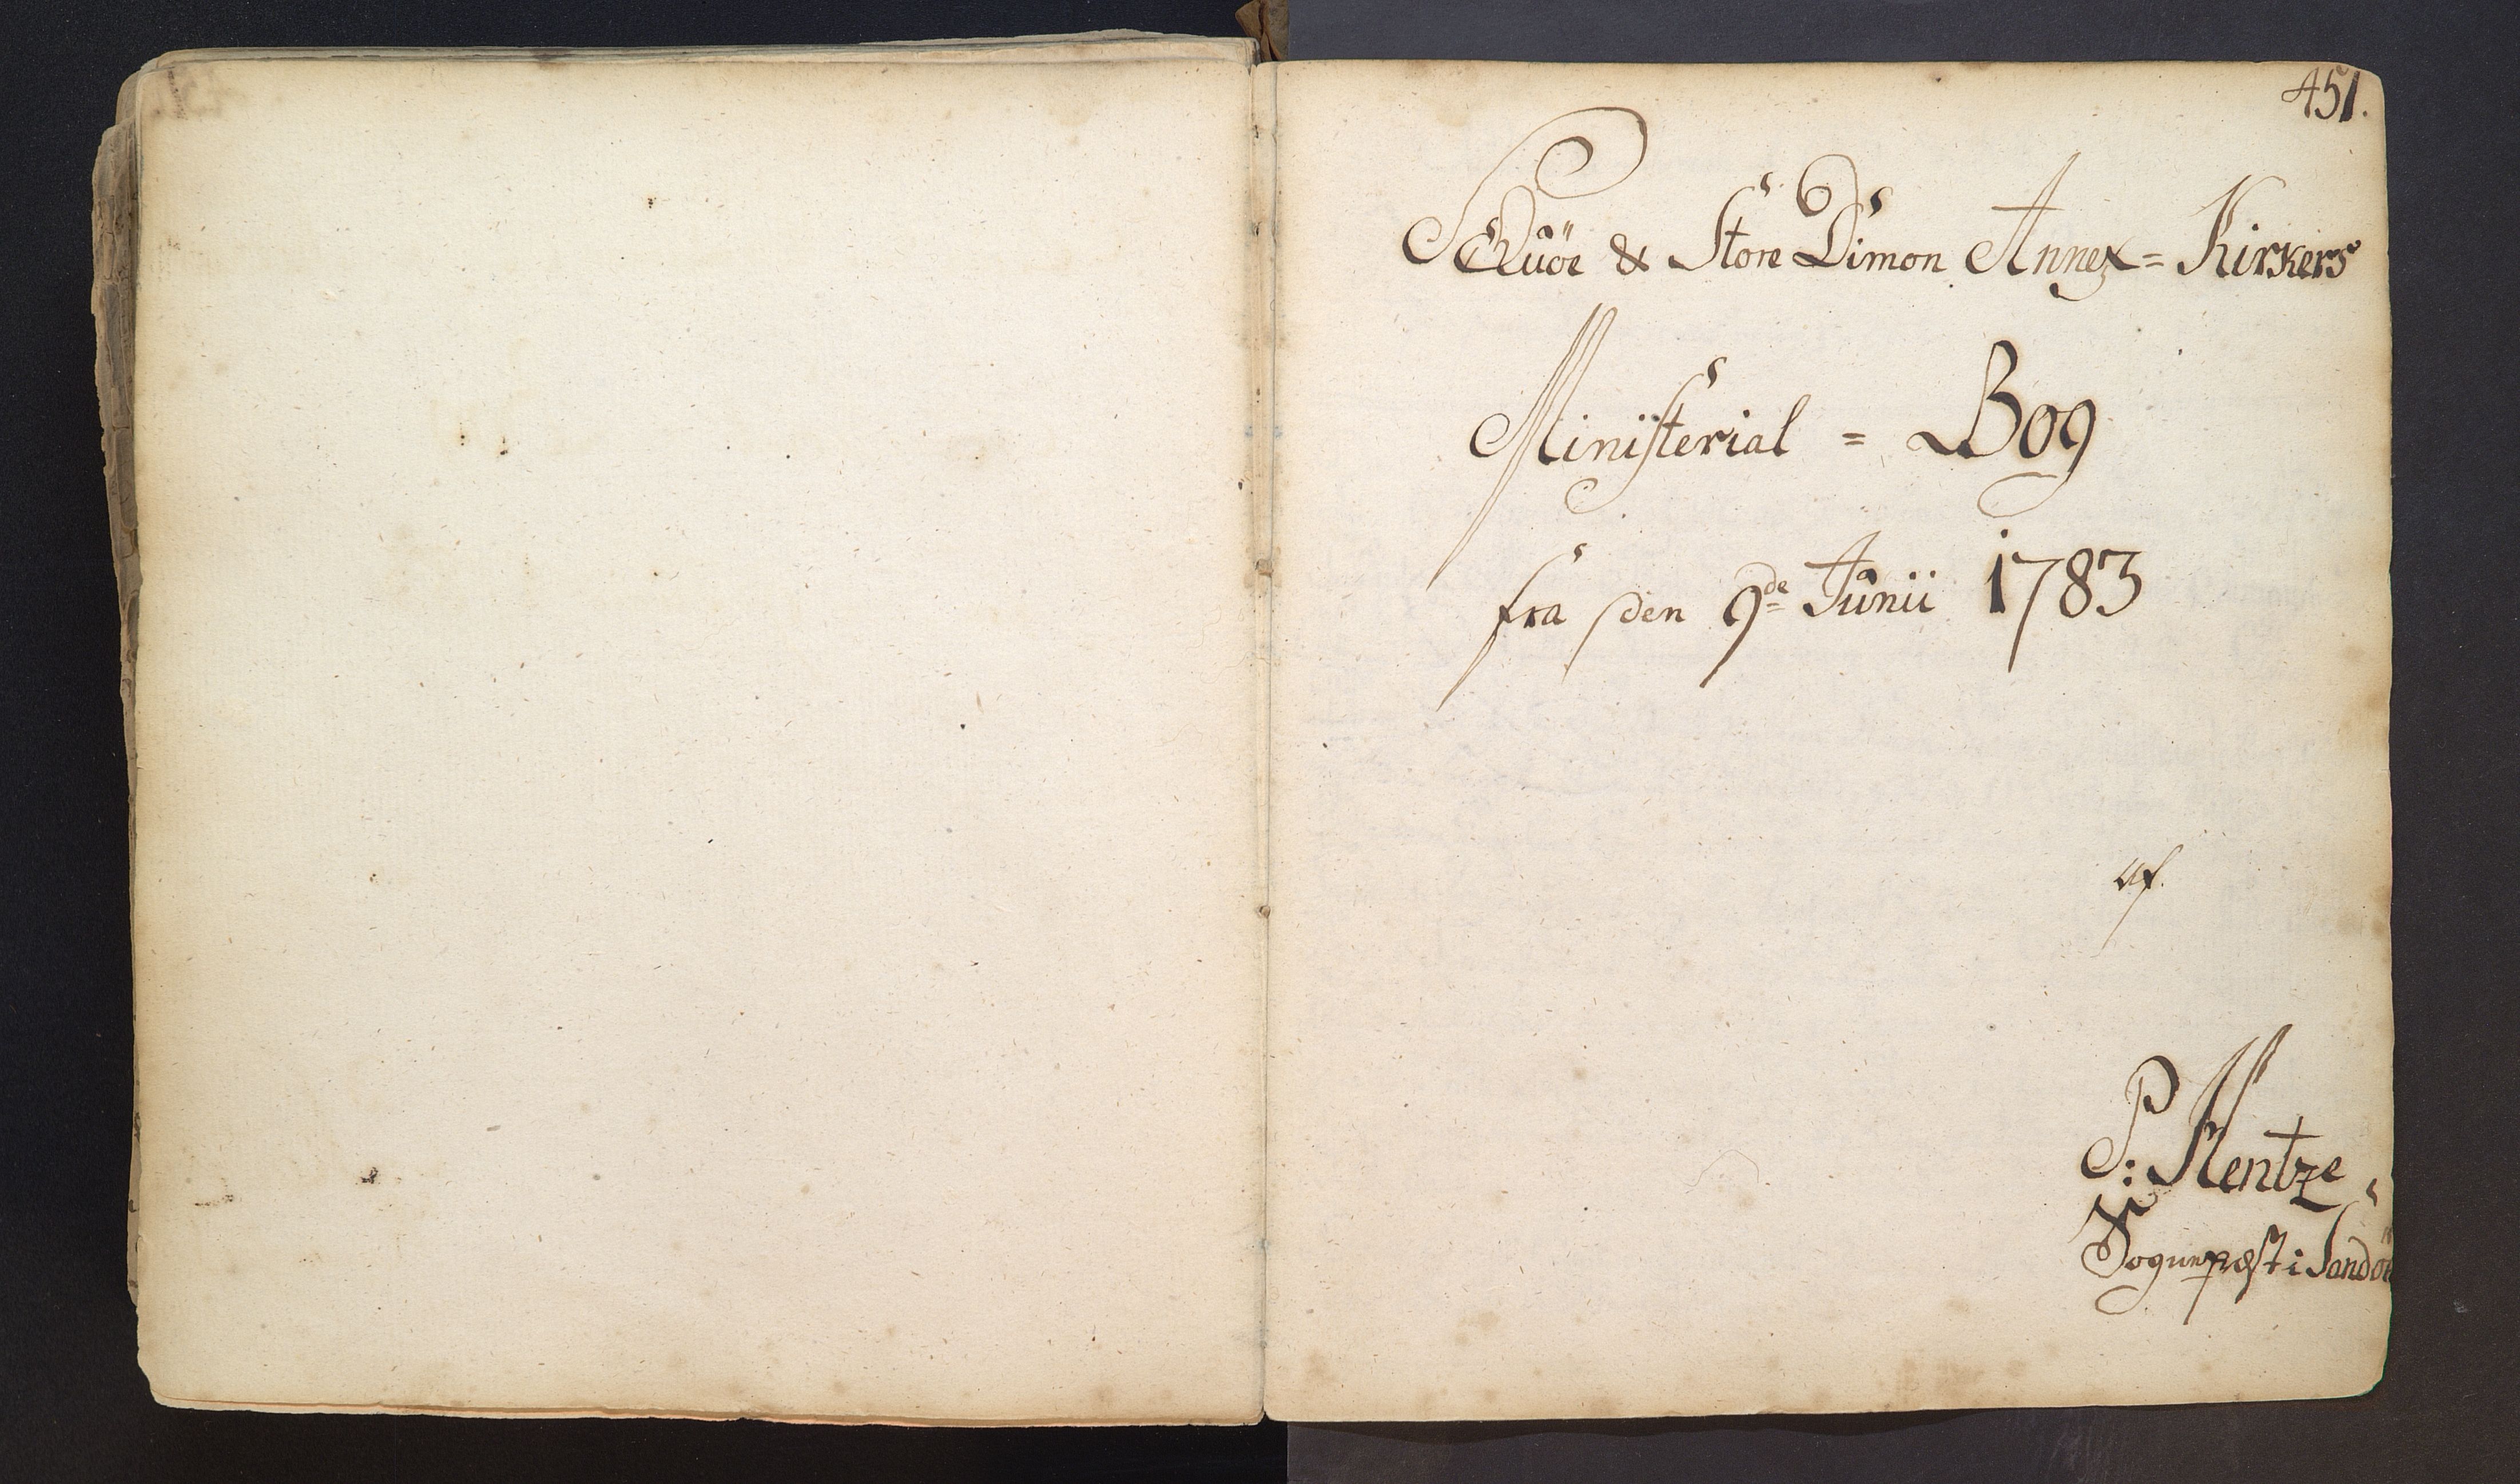 451.
Skuöe & Store Dimon Annex = Kirkers
Ministerial = Bog
fra den 9de Junii 1783
af.
P: Hentze
Sognepræst i Sandöe